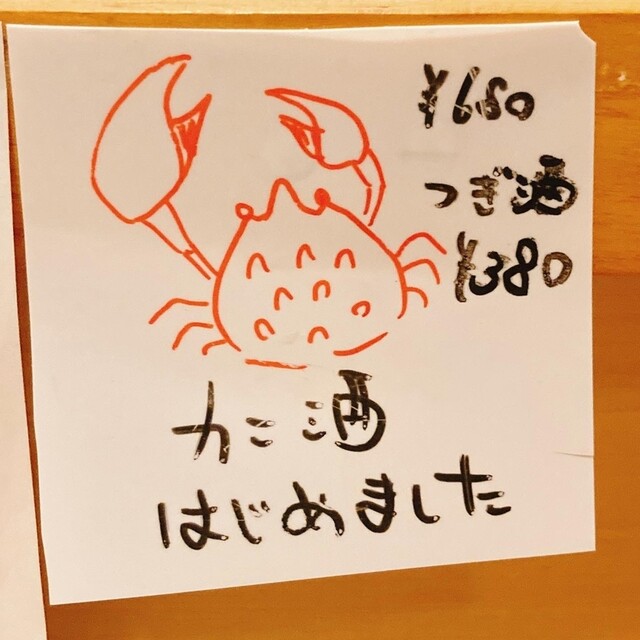 ¥680
つぎ酒
¥380
カニ酒
はじめました